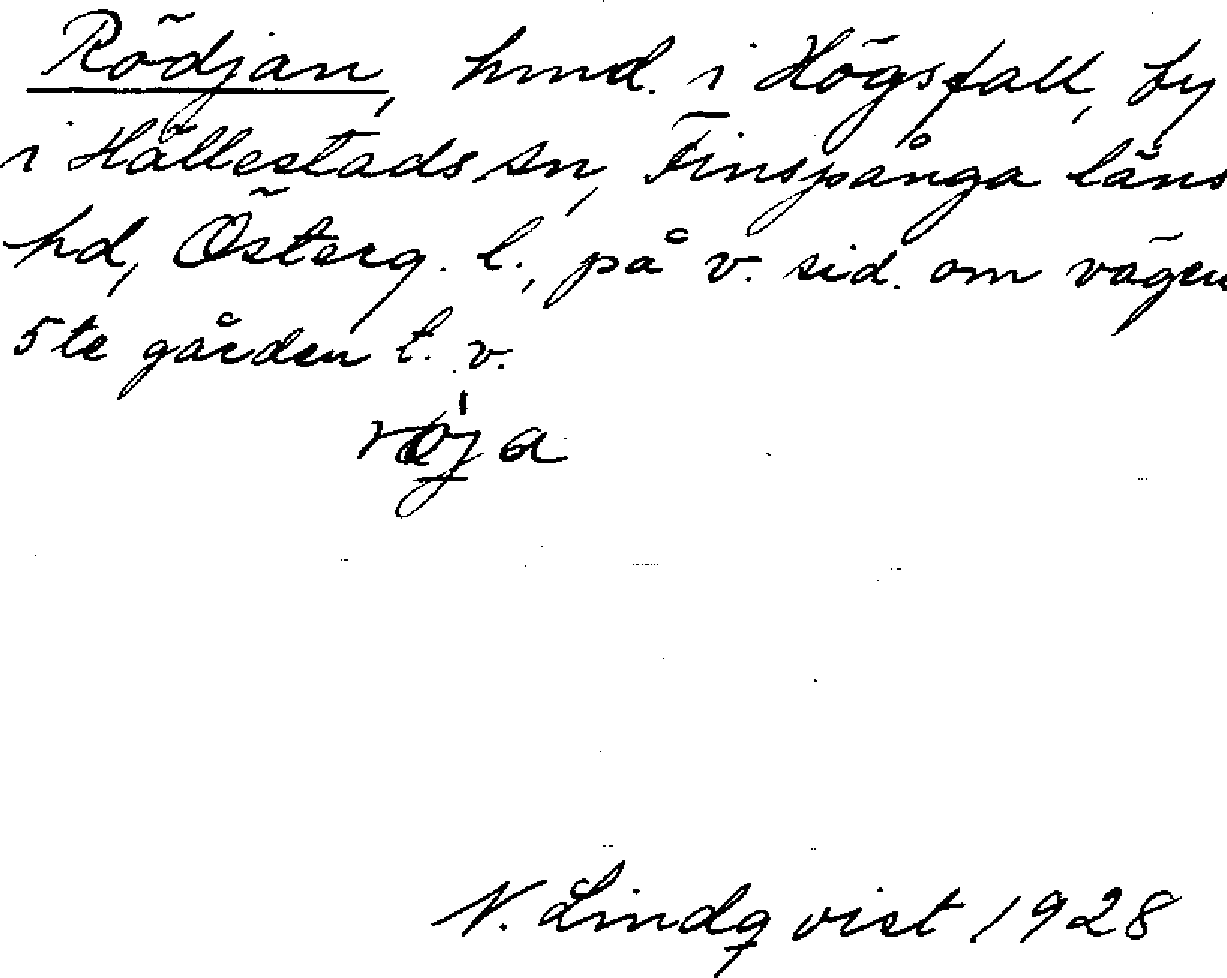 Rödjan, hmd. i Högsfall, by
i Hällestads sn, Finspånga läns
hd, Österg. l., på v. sid. om vägen
5te gården t. v.
N. Lindqvist 1928